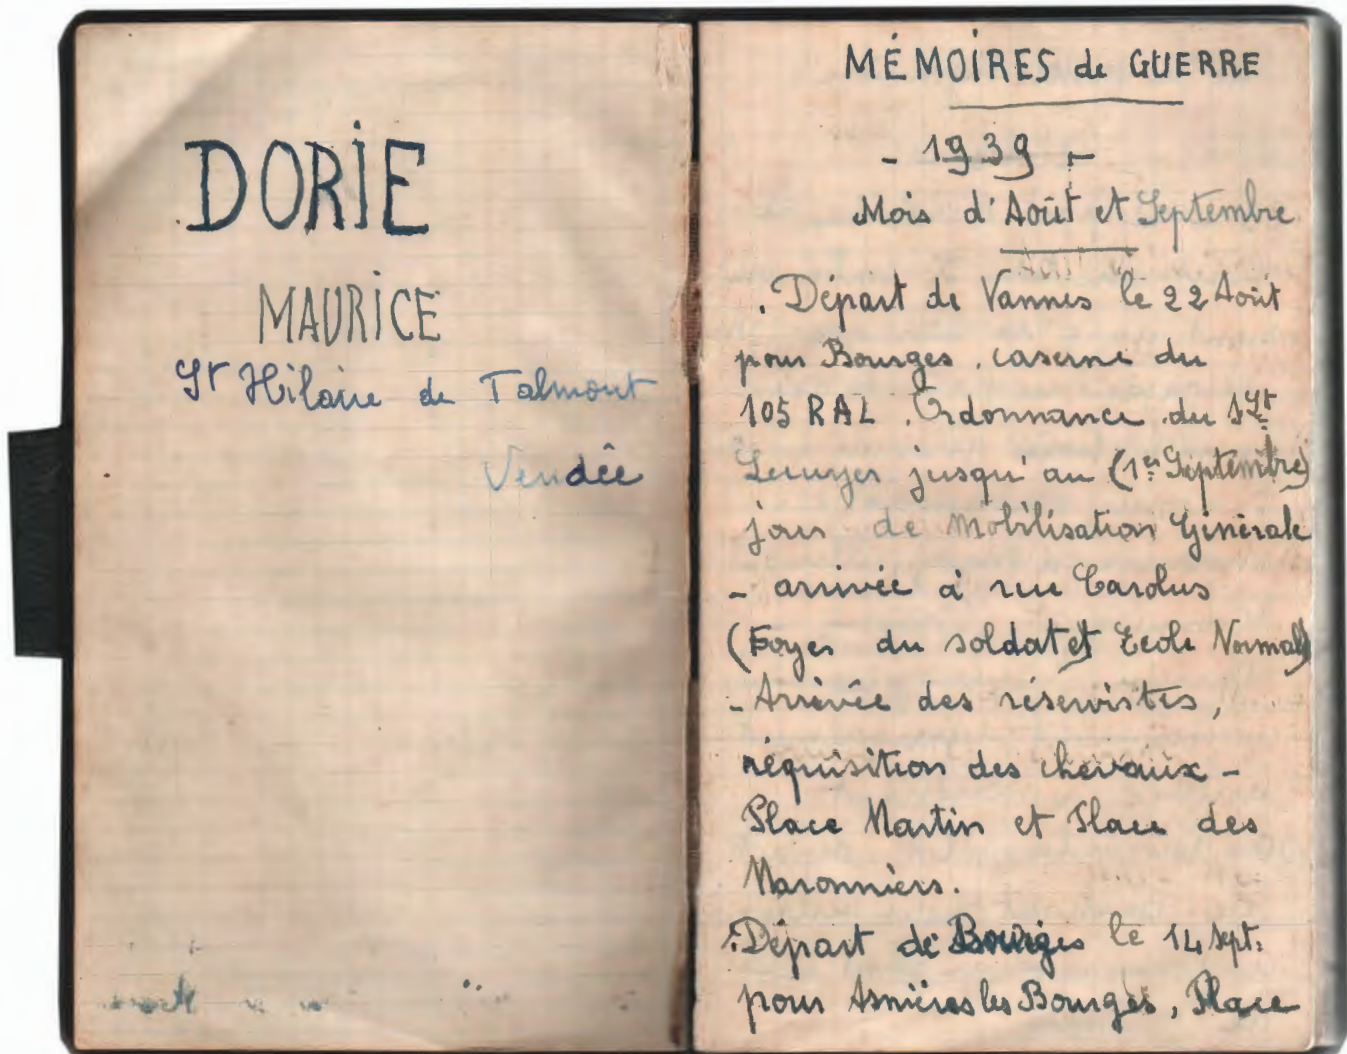 DORIE
MAURICE
St Hilaire de Talmont
Vendée
MÉMOIRES de GUERRE
- 1939 -
Mois d'Août et Septembre
. Départ de Vannes le 22 Août
pour Bourges, caserne du
105 RAL. Ordonnance du
Lecuyer jusqu'au (1er Septembre)
jour de Mobilisation Générale
- arrivée à rue Carolus
(Foyer du soldat et Ecole Normale)
- Arrivée des réservistes,
réquisition des chevaux -
Place Martin et Place des
Maronniers.
. Départ de Bourges le 14 Sept.
pour Asnières les Bourges, Place